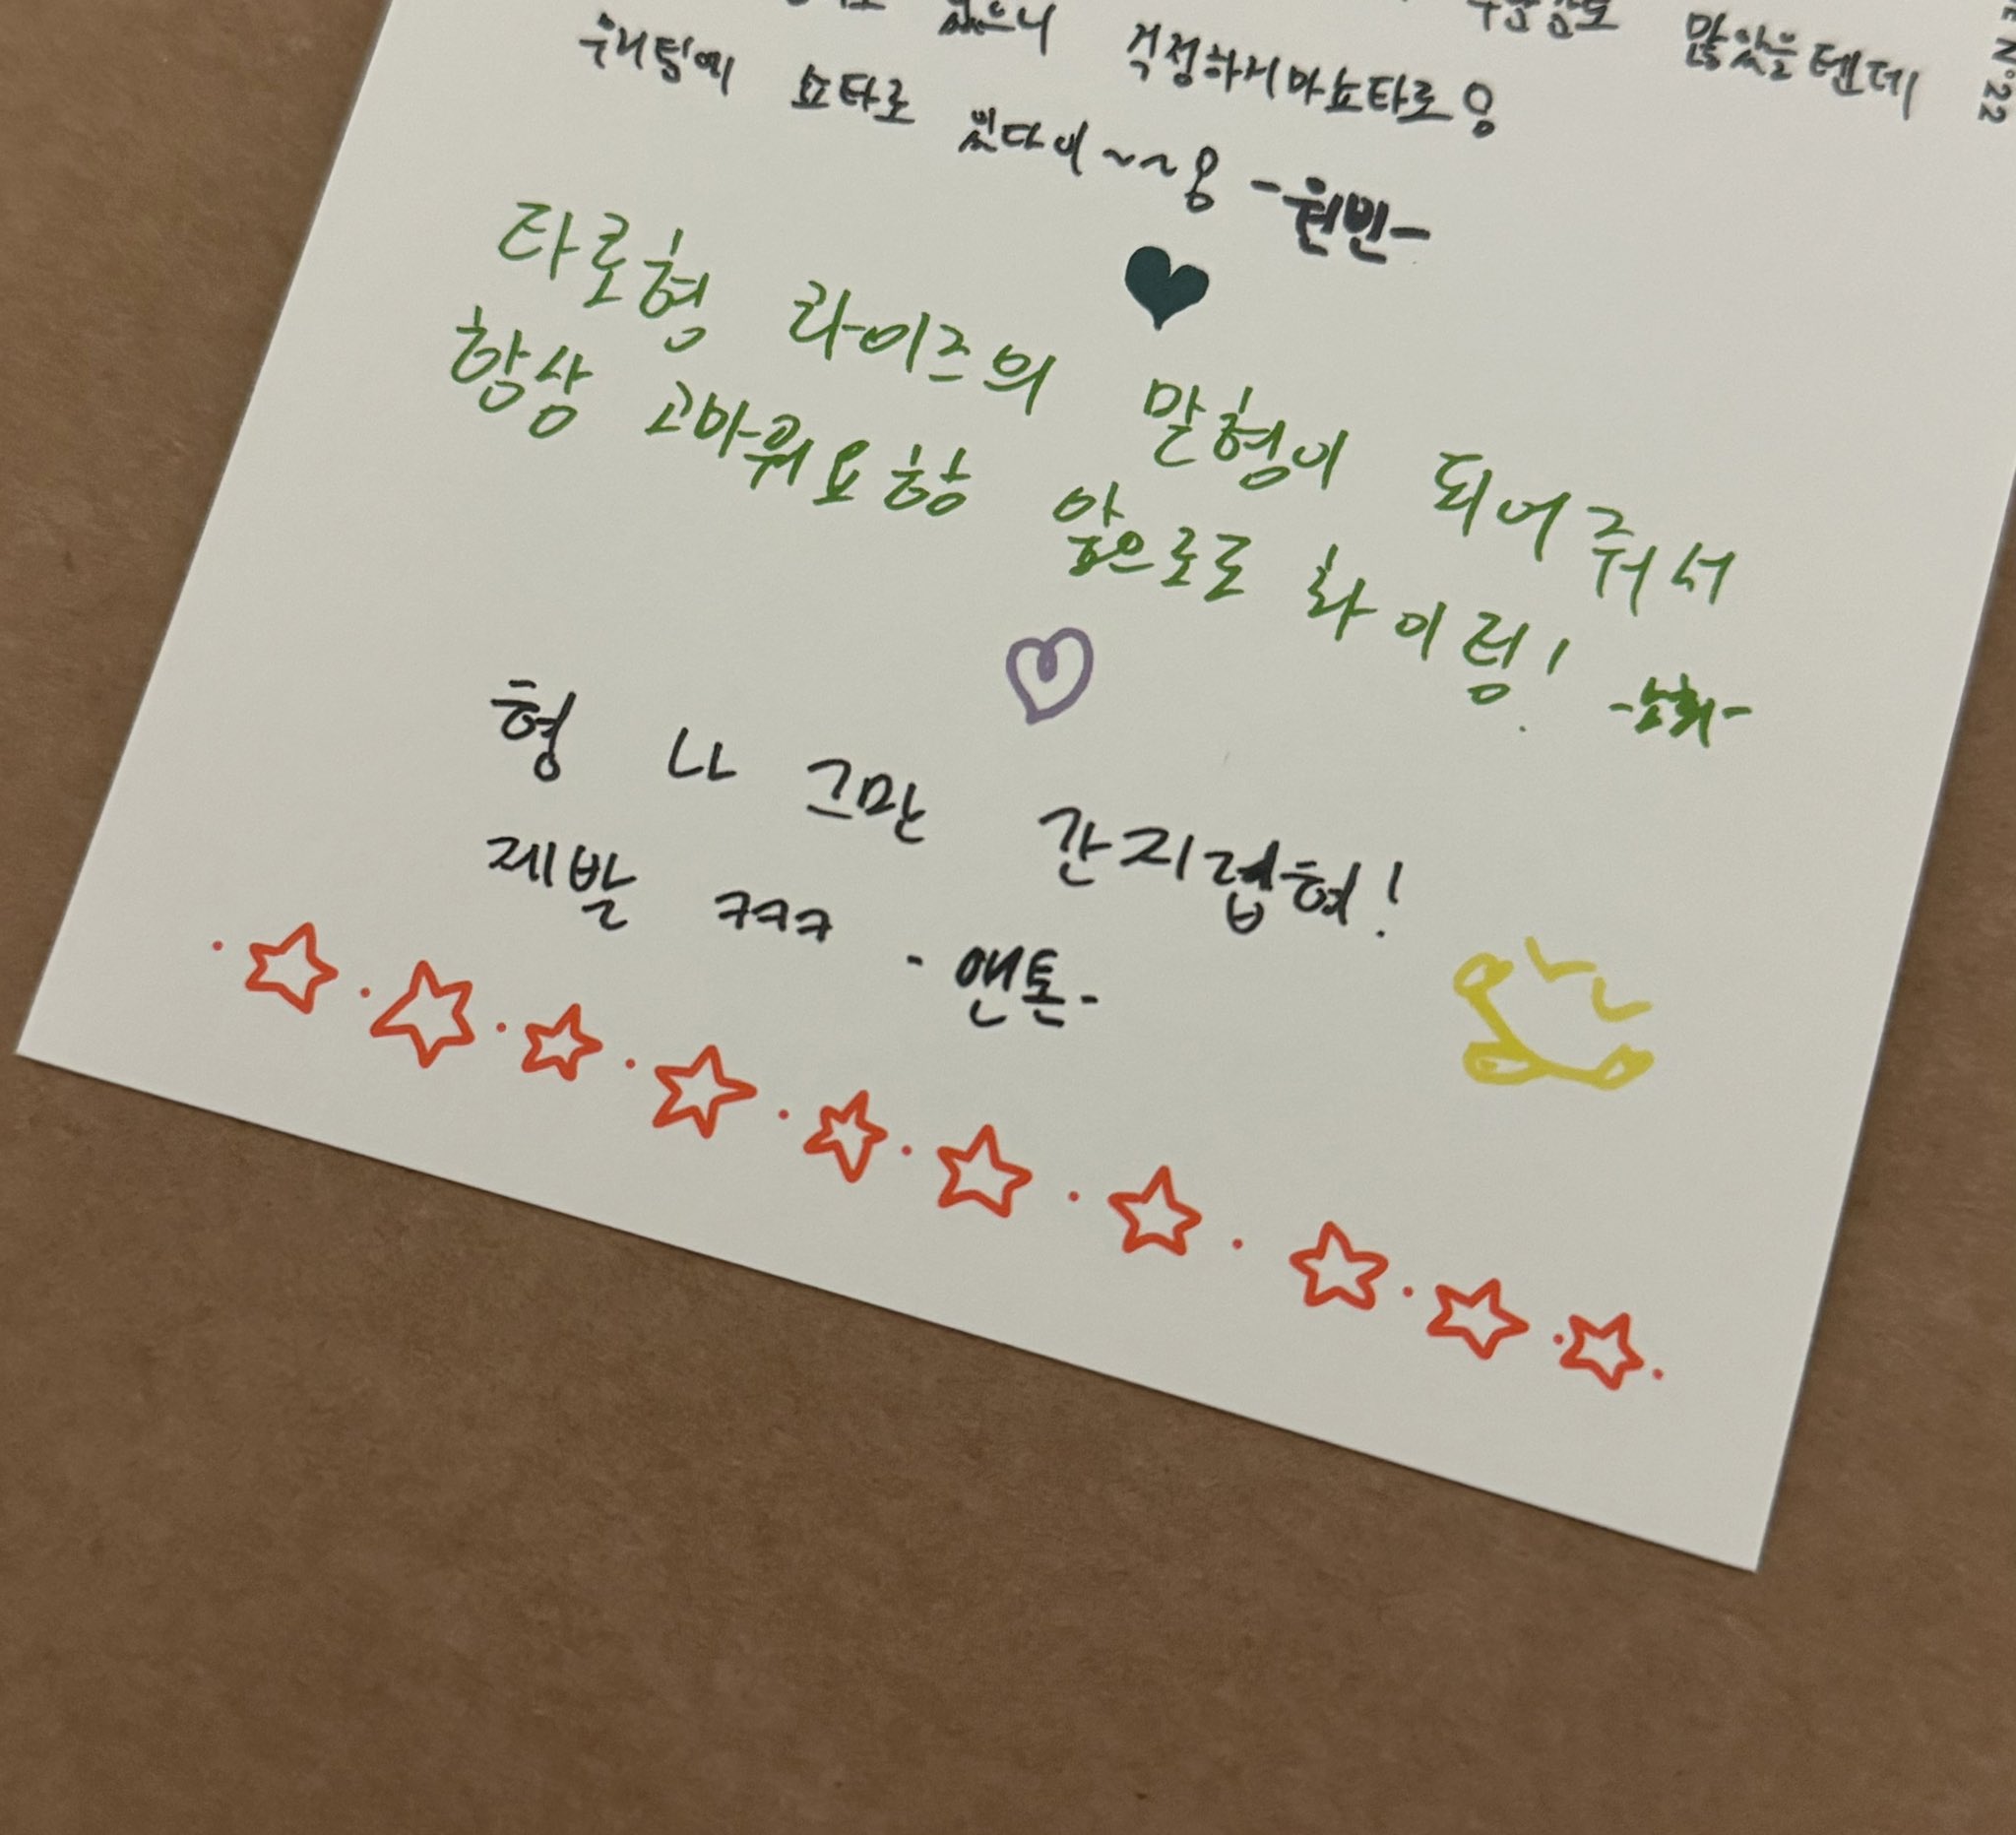 많았을텐데
있으니 걱정하지마쇼타로용
우리팀에 쇼타로 있다이~~용 -원빈-
타로형 라이즈의 맏형이 되어줘서
항상 고마워요항 앞으로도 화이팅! -소희-
형 나 그만 간지럽혀!
제발 ㅋㅋㅋ -앤톤-